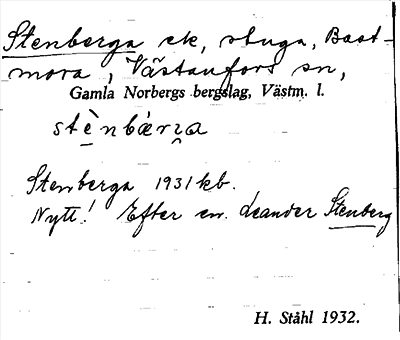 Stenberga ek, stuga, Bast-
mora, Västanfors sn,
Gamla Norbergs bergslag, Västm. l.
Stenberga 1931 kb.
Nytt! Efter en Leander Stenberg
H. Ståhl 1932.